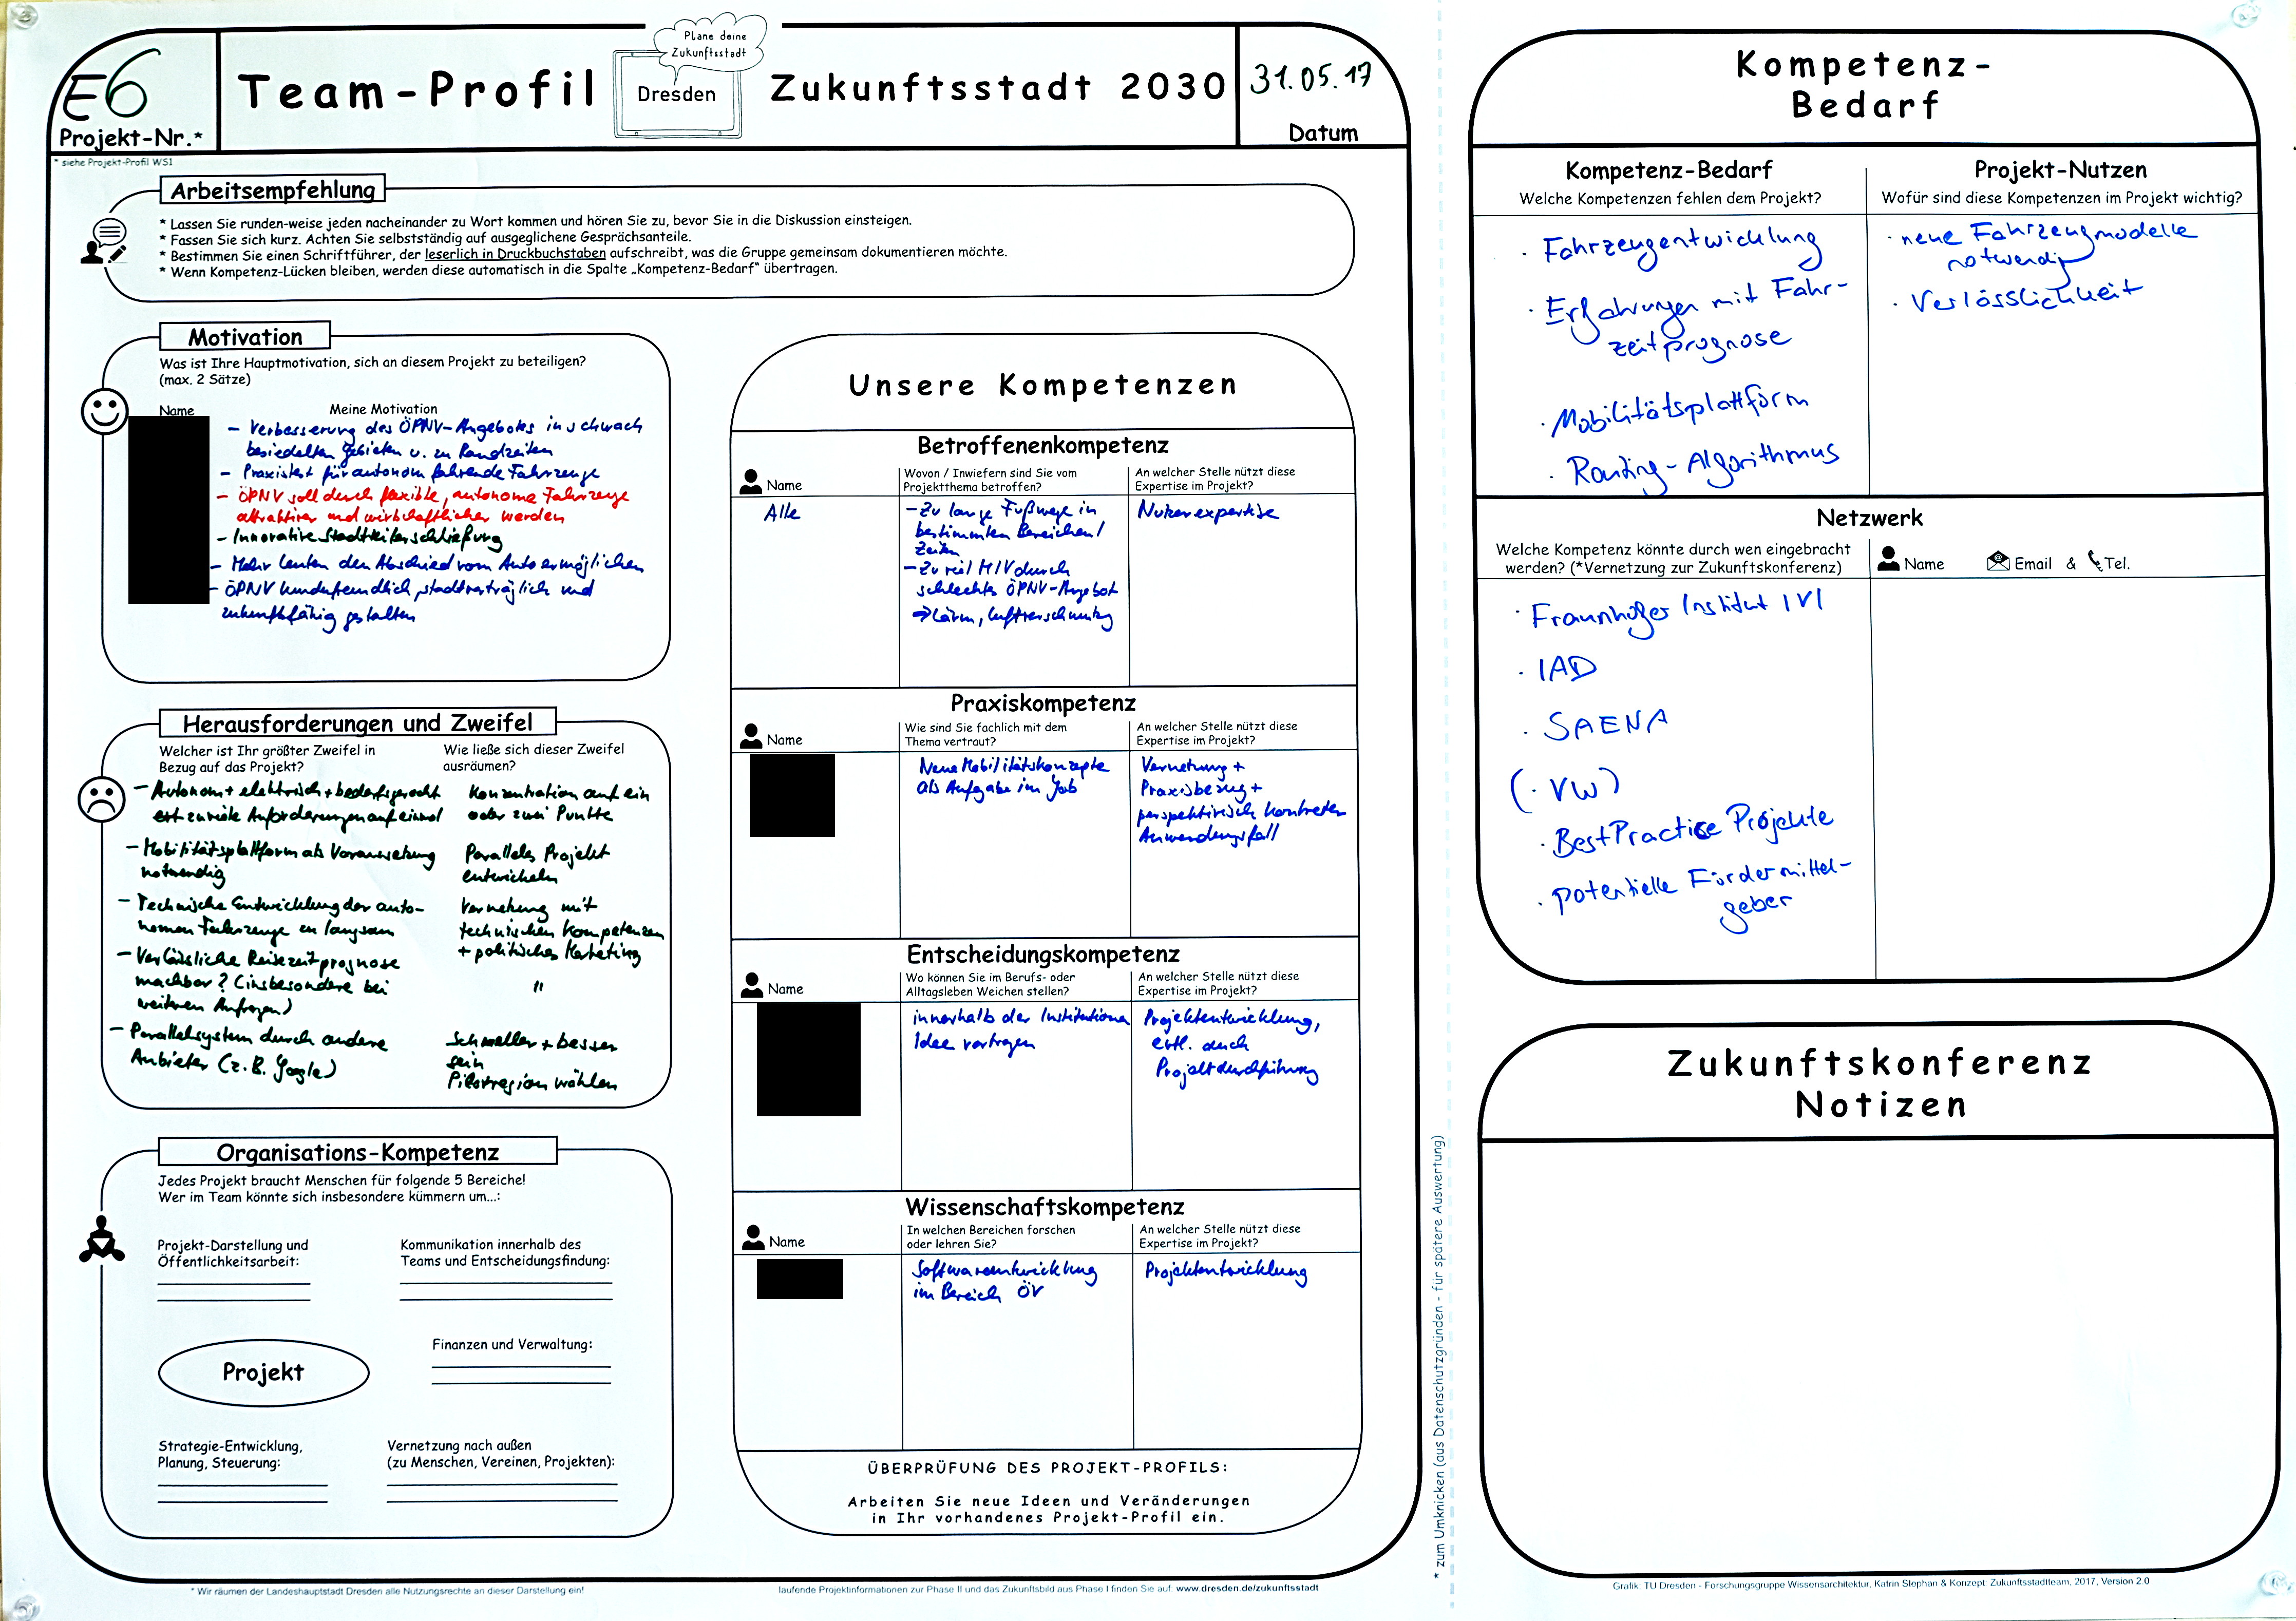 E6
Projekt-Nr.*
* siehe Projekt-Profil WS1
Team-Profil
Plane deine
Zukunftsstadt
Dresden
Zukunftsstadt 2030
31.05.17
Datum
Arbeitsempfehlung
* Lassen Sie runden-weise jeden nacheinander zu Wort kommen und hören Sie zu, bevor Sie in die Diskussion einsteigen.
* Fassen Sie sich kurz. Achten Sie selbstständig auf ausgeglichene Gesprächsanteile.
* Bestimmen Sie einen Schriftführer, der leserlich in Druckbuchstaben aufschreibt, was die Gruppe gemeinsam dokumentieren möchte.
* Wenn Kompetenz-Lücken bleiben, werden diese automatisch in die Spalte „Kompetenz-Bedarf" übertragen.
Motivation
Was ist Ihre Hauptmotivation, sich an diesem Projekt zu beteiligen?
(max. 2 Sätze)
Name
Meine Motivation
- Verbesserung des ÖPNV-Angebotes in schwach
besiedelten Gebieten u. zu Randzeiten
- Praxistest für autonom fahrende Fahrzeuge
- ÖPNV soll durch flexible, autonome Fahrzeuge
attraktiver und wirtschaftlicher werden
- Innovative Stadtteilerschließung
- Mehr Leuten den Abschied vom Auto ermöglichen
- ÖPNV kundenfreundlich, stadtverträglich und
zukunftsfähig gestalten
Herausforderungen und Zweifel
Welcher ist Ihr größter Zweifel in
Bezug auf das Projekt?
Wie ließe sich dieser Zweifel
ausräumen?
- Autonom + elektrisch + bedarfsgerecht
evtl. zu viele Anforderungen auf einmal
Konzentration auf ein
oder zwei Punkte
- Mobilitätsplattform als Voraussetzung
notwendig
Paralleles Projekt
entwickeln
- Technische Entwicklung der auto-
nomen Fahrzeuge zu langsam
Vernetzung mit
technischen Kompetenzen
+ politisches Marketing
- Verlässliche Reisezeitprognose
machbar? (insbesondere bei
weiteren Anfragen)
"
- Parallelsystem durch andere
Anbieter (z.B. Google)
Schneller + besser
sein
Pilotregion wählen
Organisations-Kompetenz
Jedes Projekt braucht Menschen für folgende 5 Bereiche!
Wer im Team könnte sich insbesondere kümmern um...:
Projekt-Darstellung und
Öffentlichkeitsarbeit:
Kommunikation innerhalb des
Teams und Entscheidungsfindung:
Projekt
Finanzen und Verwaltung:
Strategie-Entwicklung,
Planung, Steuerung:
Vernetzung nach außen
(zu Menschen, Vereinen, Projekten):
Unsere Kompetenzen
Betroffenenkompetenz
Name
Wovon / Inwiefern sind Sie vom
Projektthema betroffen?
An welcher Stelle nützt diese
Expertise im Projekt?
Alle
- Zu lange Fußwege in
bestimmten Bereichen/
Zeiten
- Zu viel MIV durch
schlechtes ÖPNV-Angebot
→ Lärm, Luftverschmutzg
Nutzerexpertise
Praxiskompetenz
Name
Wie sind Sie fachlich mit dem
Thema vertraut?
An welcher Stelle nützt diese
Expertise im Projekt?
Neue Mobilitätskonzepte
als Aufgabe im Job
Vernetzung +
Praxisbezug +
perspektivisch konkreter
Anwendungsfall
Entscheidungskompetenz
Name
Wo können Sie im Berufs- oder
Alltagsleben Weichen stellen?
An welcher Stelle nützt diese
Expertise im Projekt?
innerhalb der Institutionen
Idee vortragen
Projektentwicklung,
evtl. auch
Projektdurchführung
Wissenschaftskompetenz
Name
In welchen Bereichen forschen
oder lehren Sie?
An welcher Stelle nützt diese
Expertise im Projekt?
Softwareentwicklung
im Bereich ÖV
Projektentwicklung
ÜBERPRÜFUNG DES PROJEKT-PROFILS:
Arbeiten Sie neue Ideen und Veränderungen
in Ihr vorhandenes Projekt-Profil ein.
* Wir räumen der Landeshauptstadt Dresden alle Nutzungsrechte an dieser Darstellung ein!
laufende Projektinformationen zur Phase II und das Zukunftsbild aus Phase I finden Sie auf: www.dresden.de/zukunftsstadt
* zum Umknicken (aus Datenschutzgründen - für spätere Auswertung)
Kompetenz-
Bedarf
Kompetenz-Bedarf
Welche Kompetenzen fehlen dem Projekt?
Projekt-Nutzen
Wofür sind diese Kompetenzen im Projekt wichtig?
· Fahrzeugentwicklung
· Erfahrungen mit Fahr-
zeitprognose
· Mobilitätsplattform
· Routing-Algorithmus
· neue Fahrzeugmodelle
notwendig
· Verlässlichkeit
Netzwerk
Welche Kompetenz könnte durch wen eingebracht
werden? (*Vernetzung zur Zukunftskonferenz)
Name
Email & Tel.
· Fraunhofer Institut IVI
· IAD
· SAENA
(· VW)
· Best Practice Projekte
· potentielle Fördermittel-
geber
Zukunftskonferenz
Notizen
Grafik: TU Dresden - Forschungsgruppe Wissensarchitektur, Katrin Stephan & Konzept: Zukunftsstadtteam, 2017, Version 2.0